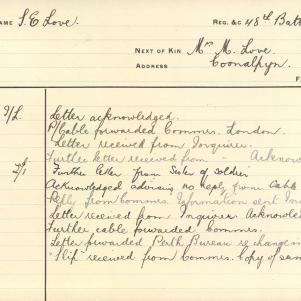 NAME S. E. Love. REG. &C 48th Batt
NEXT OF KIN Mrs M. Love.
ADDRESS Coonalpyn.
F
Letter acknowledged.
P/Cable forwarded Commrs. London.
Letter received from Inquirer.
Further letter received from - Acknow
Further letter from Sister of Soldier
Acknowledged advising no reply from Cable
Reply from Commrs. Information sent In
Letter received from Inquirer Acknowled
Further cable forwarded Commrs.
Letter forwarded Perth Bureau re change
"Slip" received from Commrs. Copy of same